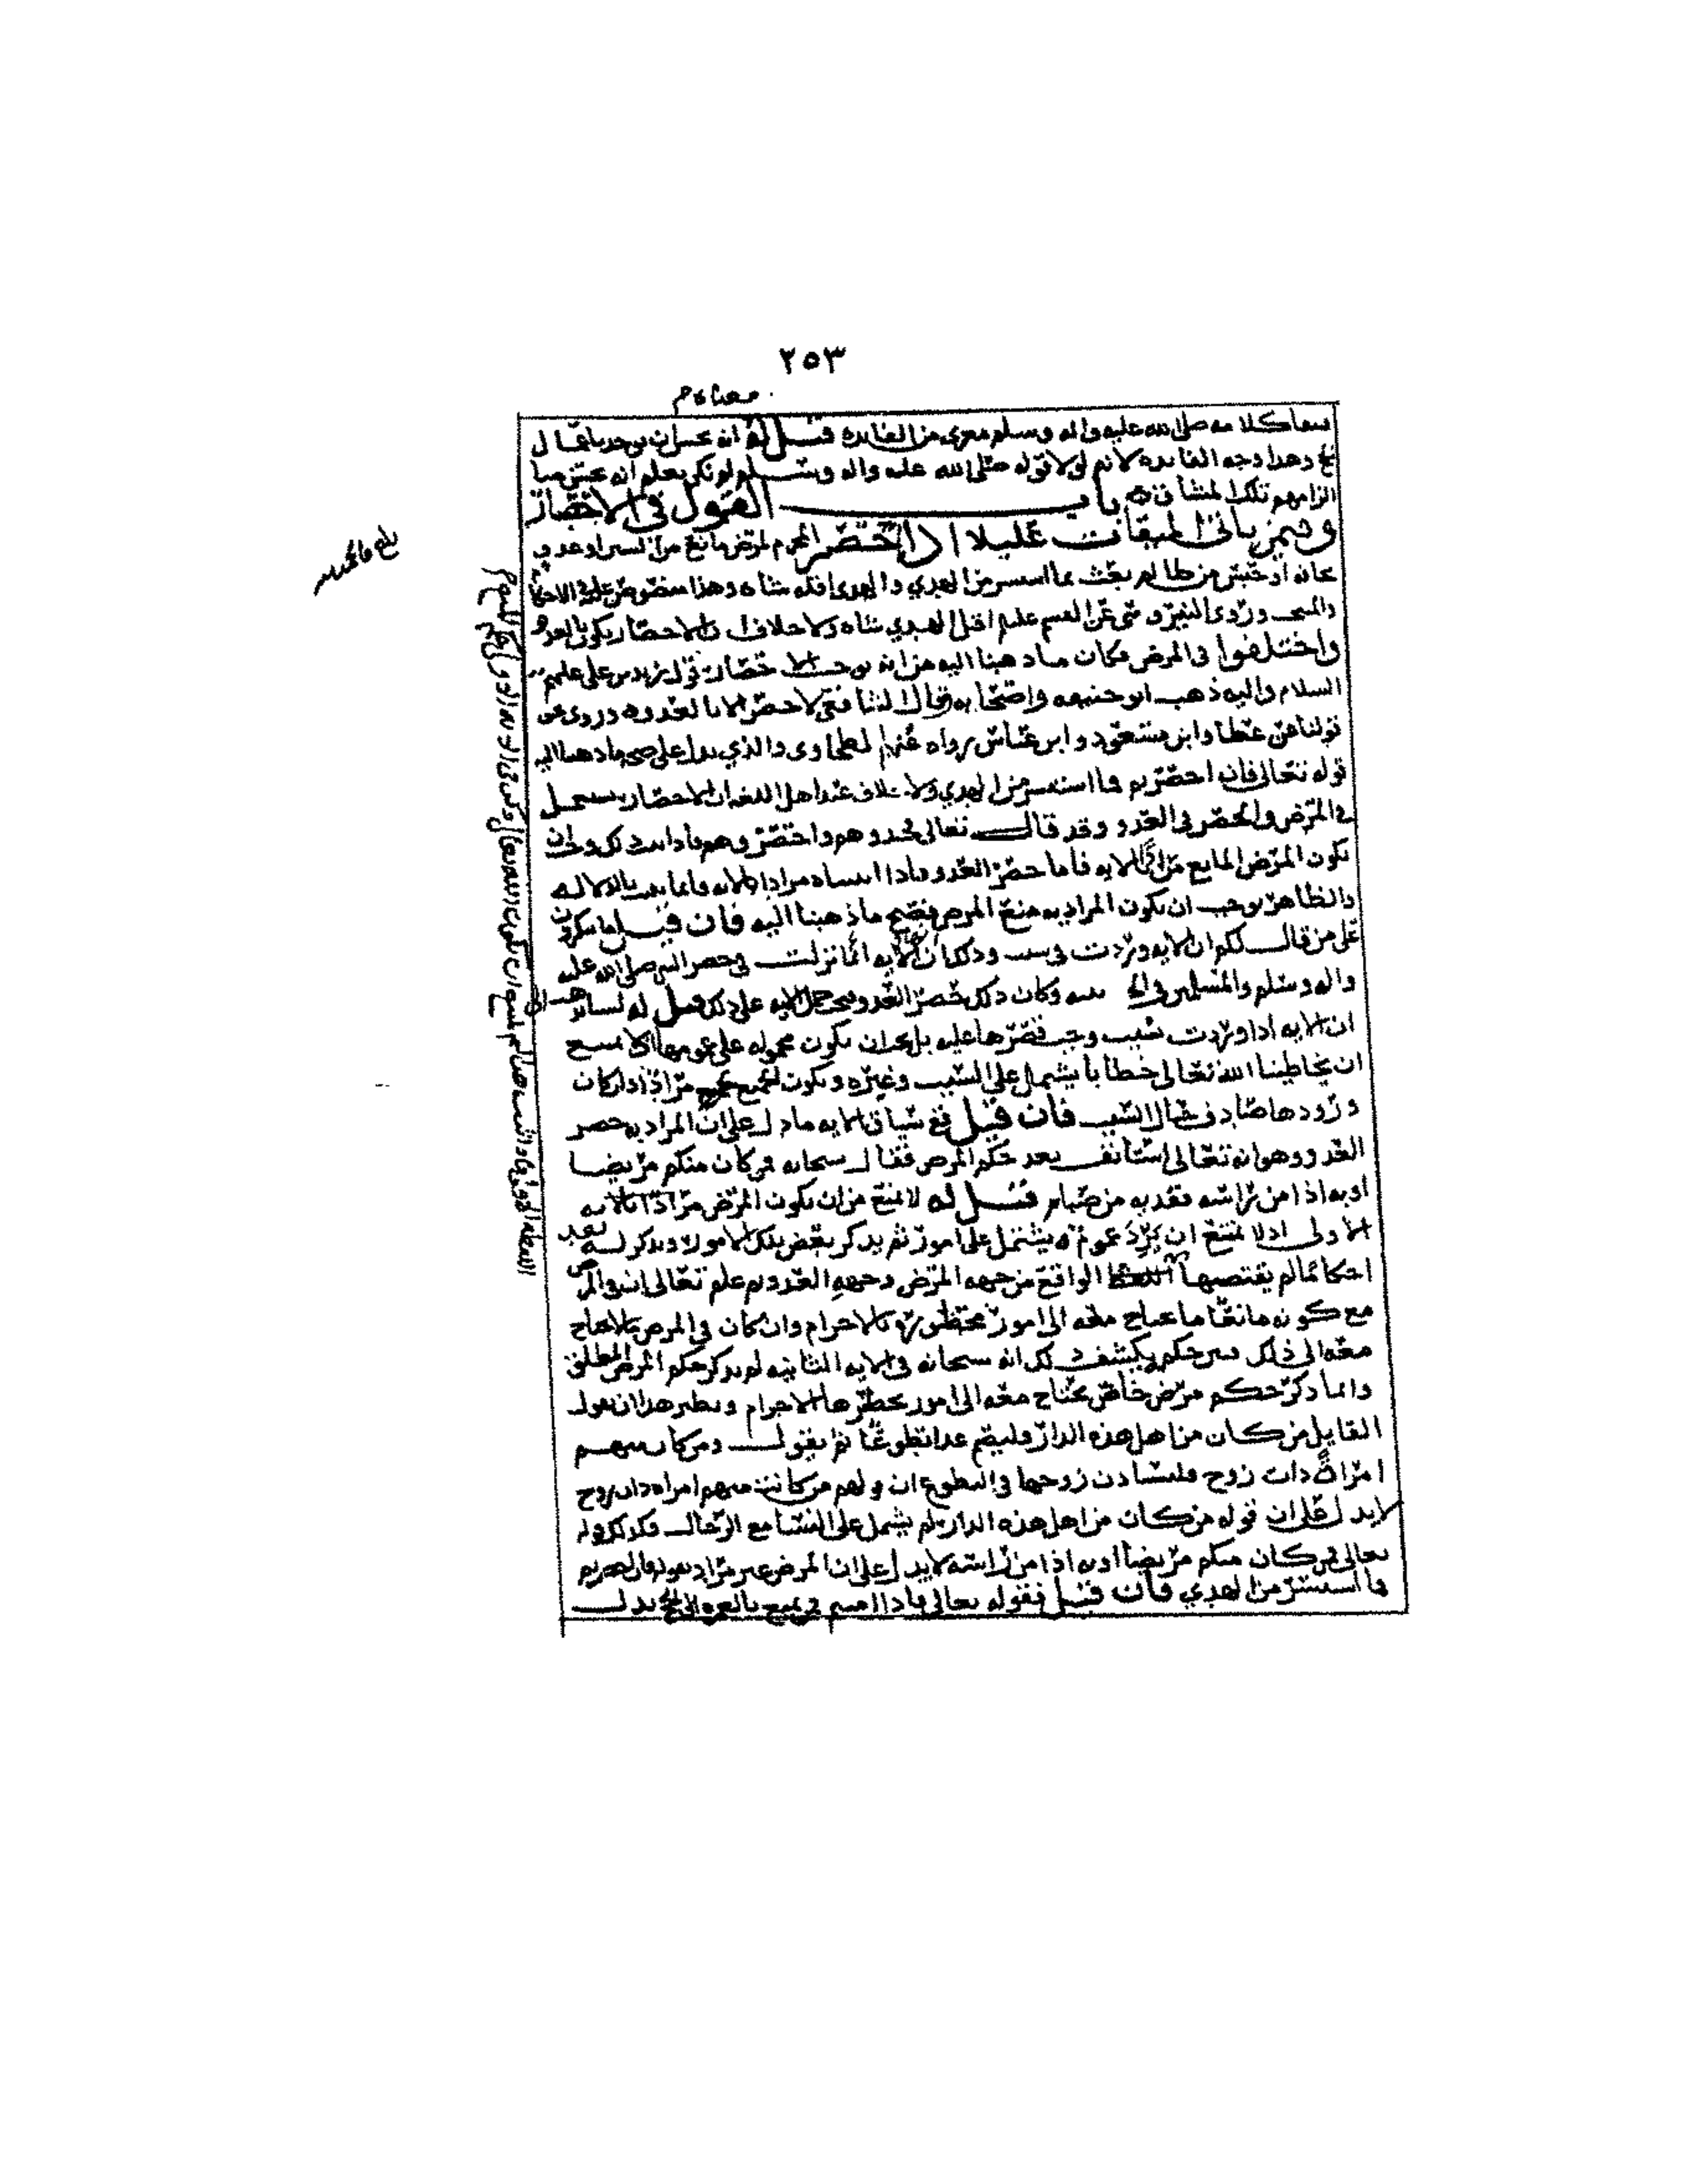 ٢٥٣
كلامه صلى الله عليه واله وسلم معرى من الفايده قيل له انه
وهذا وجه الفايده لانه لولا قوله صلى الله عليه واله وسلم لم نكن نعلم انه
الزامهم تلك المشاق باب القول في الاحصار
وفيمن ياتي الميقات عليلا اذا احصر المحرم لمرض مانع من السير او عدو
خافه او حبس من ظالم بعث بما استيسر من الهدي والهدي اقله شاه وهذا منصوص عليه في الاحكام
والمنتخب وروى النيروسي عن القسم عليه اقل الهدي شاه ولا خلاف ان الاحصار يكون بالعدو
واختلفوا في المرض فكان ما ذهبنا اليه من انه يوجب الاحصار قول زيد بن علي عليهم
السلام واليه ذهب ابو حنيفه واصحابه وقال الشافعي لا حصر الا بالعدو وروى
قولنا عن عطا وابن مسعود وابن عباس رواه عنهم الطحاوي والذي يدل على صحه ما ذهبنا اليه
قوله تعالى فان احصرتم فما استيسر من الهدي ولا خلاف عند اهل اللغه ان الاحصار يستعمل
في المرض والحصر في العدو وقد قال تعالى وخذوهم واحصروهم فاذا ثبت ذلك وجب ان
يكون المرض المانع مراد الايه فاما حصر العدو فاذا اثبتناه مرادا بالايه فانما يثبت بالدلاله
والظاهر يوجب ان يكون المراد به منع المرض فصح ما ذهبنا اليه فان قيل ما تنكرون
على من قال لكم ان الايه وردت في سبب وذلك ان الايه انما نزلت في حصر النبي صلى الله عليه
واله وسلم والمسلمين وكان ذلك حصر العدو فيجب حمل الايه على ذلك قيل له لسنا
ان الايه اذا وردت لسبب وجب قصرها عليه بل يجب ان تكون محموله على عمومها اذ لا يمتنع
ان يخاطبنا الله تعالى خطابا يشتمل على السبب وغيره ويكون الجميع مرادا اذا كان
ورودها صادف حال السبب فان قيل ففي سياق الايه ما دل على ان المراد به حصر
العدو وهو انه تعالى استانف بعد حكم المرض فقال سبحانه فمن كان منكم مريضا
او به اذا من راسه ففديه من صيام قيل له لا يمنع من ان يكون المرض مرادا بالايه
الاولى اذ لا يمتنع ان يرد عموم يشتمل على امور ثم يذكر بعض تلك الامور ويذكر له بعد
احكاما لم يقتضيها اللفظ الواقع من جهه المرض وجهه العدو ثم علم تعالى ان في المرض
مع كونه مانعا ما يحتاج معه الى امور محظوره بالاحرام وان كان في المرض ما لا يحتاج
معه الى ذلك فبين حكمه ويكشف ذلك انه سبحانه في الايه الثانيه لم يذكر حكم المرض المطلق
وانما ذكر حكم مرض خاص يحتاج معه الى امور يحظرها الاحرام ونظير هذا ان يقول
القايل من كان من اهل هذه الدار فليصم غدا تطوعا ثم يقول ومن كان منهم
امراة ذات زوج فلتستاذن زوجها في التطوع ان قولهم من كانت منهم امراه ذات زوج
لا يدل على ان قوله من كان من اهل هذه الدار لم يشتمل على النسا مع الرجال فكذلك قوله
تعالى فمن كان منكم مريضا او به اذا من راسه لا يدل على ان المرض غير مراد بقوله فان احصرتم
فما استيسر من الهدي فان قيل فقوله تعالى فاذا امنتم فمن تمتع بالعمره الى الحج يدل